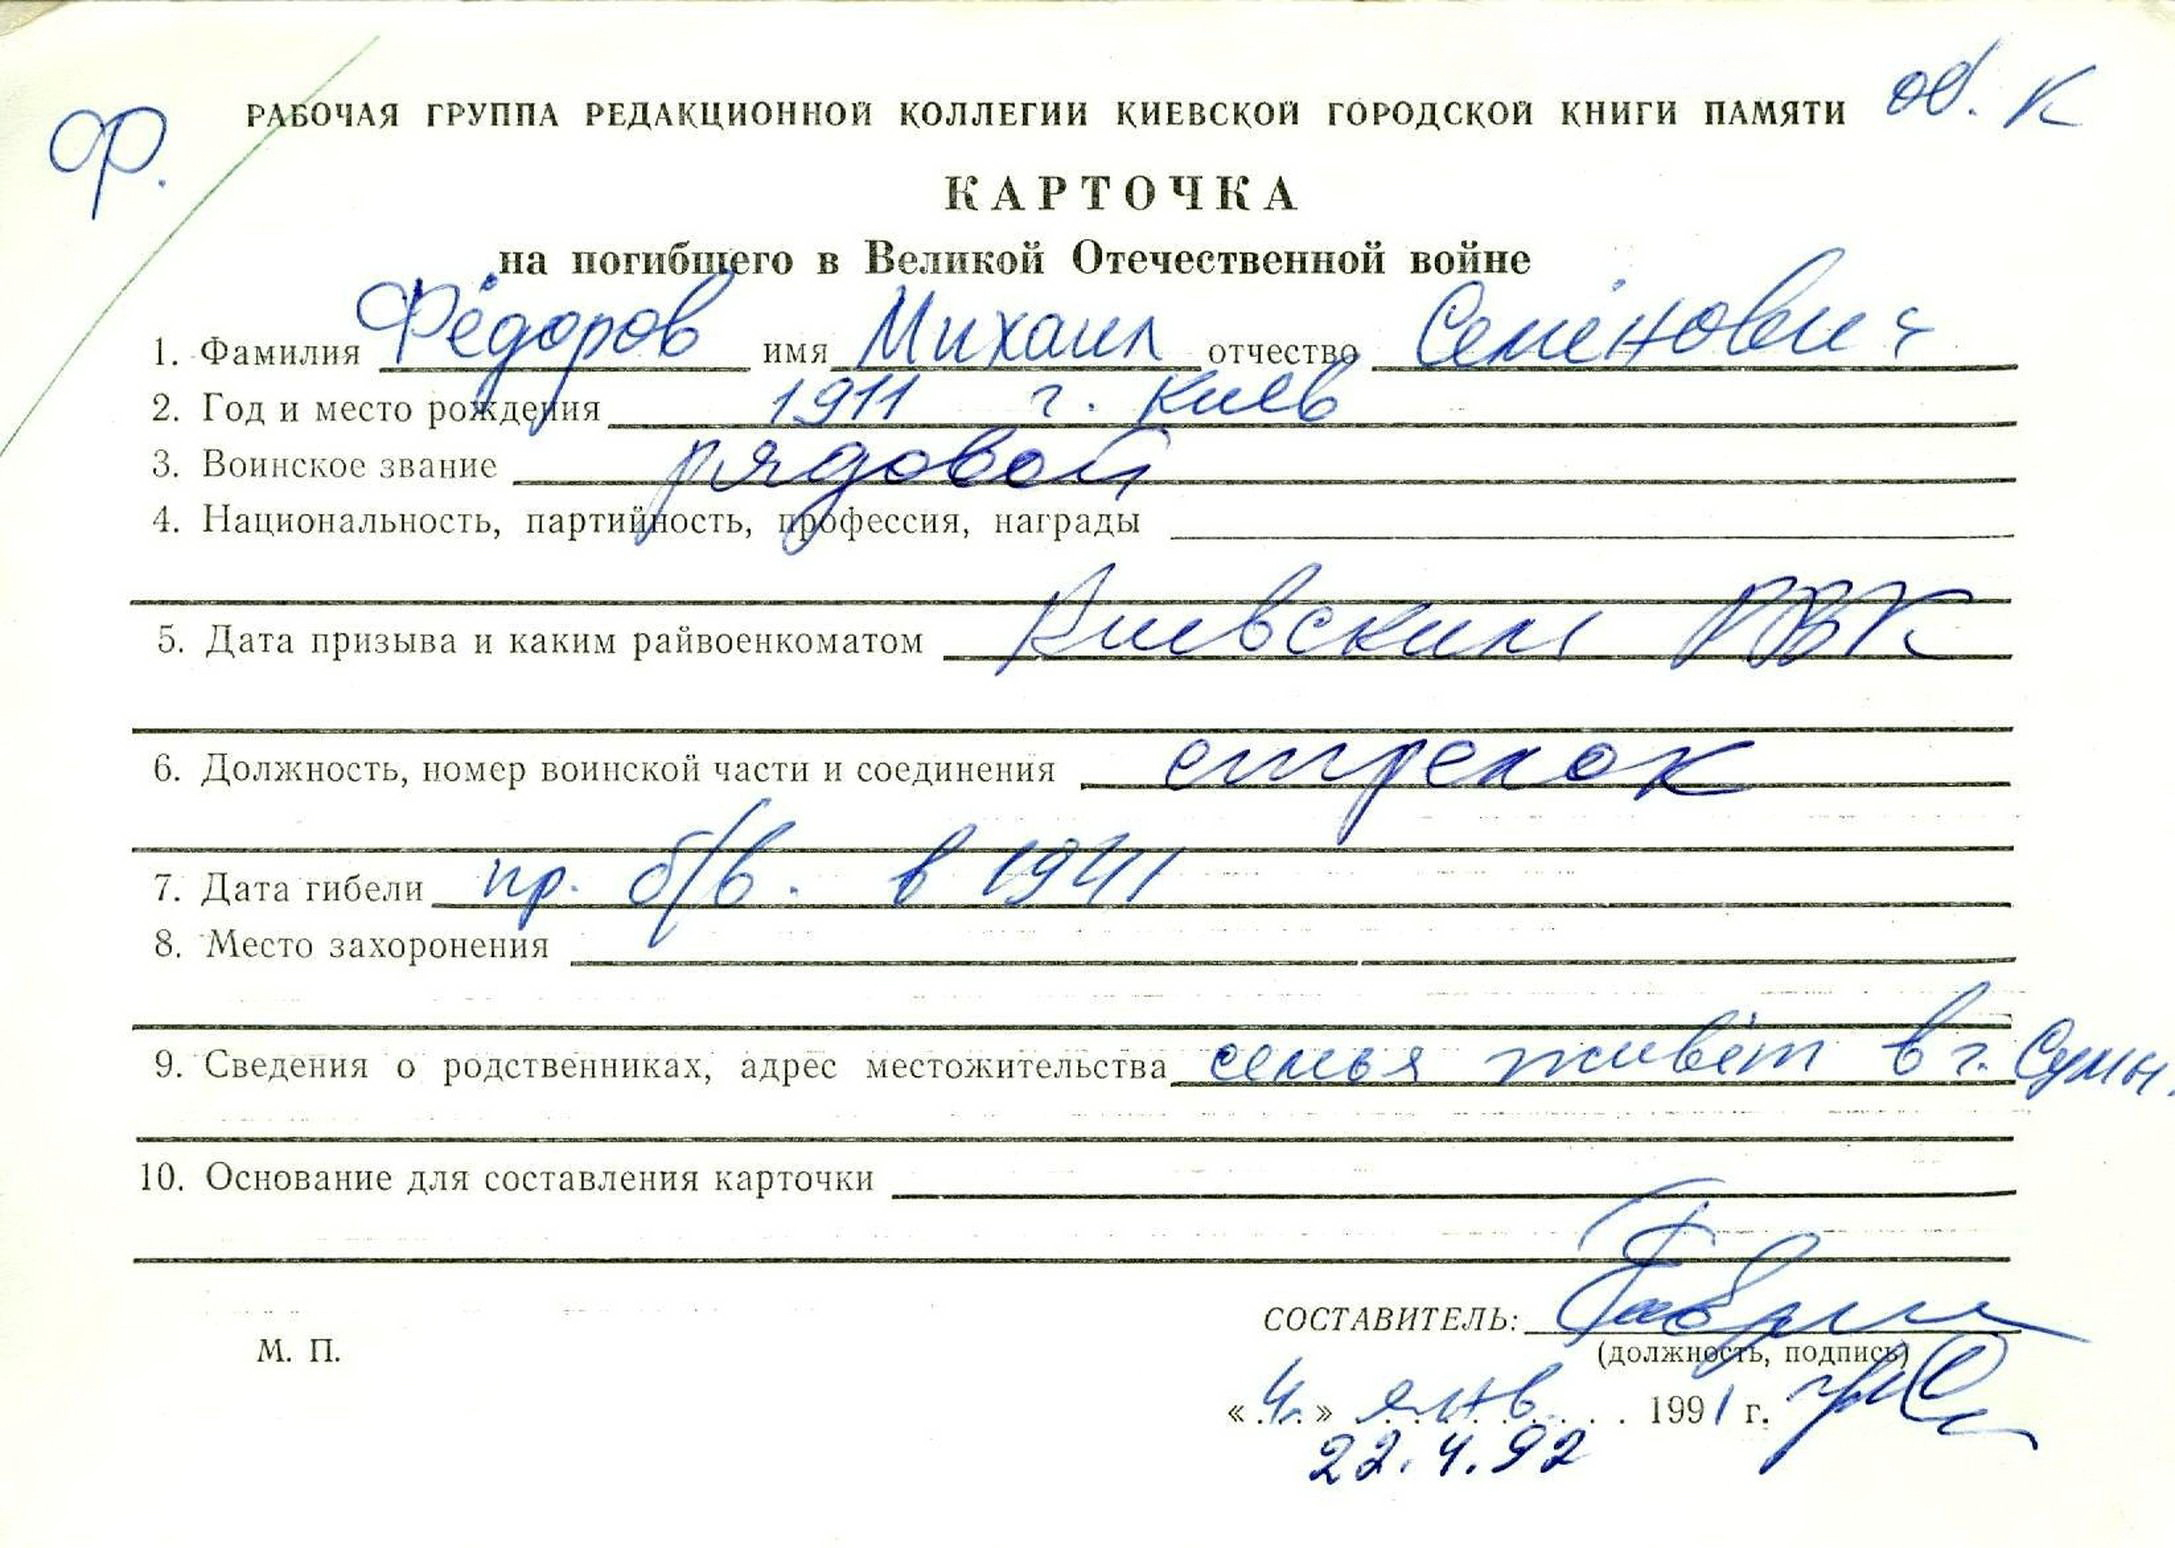 Ф. РАБОЧАЯ ГРУППА РЕДАКЦИОННОЙ КОЛЛЕГИИ КИЕВСКОЙ ГОРОДСКОЙ КНИГИ ПАМЯТИ об. К
КАРТОЧКА
на погибшего в Великой Отечественной войне
1. Фамилия Фёдоров имя Михаил отчество Семёнович
2. Год и место рождения 1911 г. Киев
3. Воинское звание рядовой
4. Национальность, партийность, профессия, награды
5. Дата призыва и каким райвоенкоматом Киевским РВК
6. Должность, номер воинской части и соединения стрелок
7. Дата гибели пр. б/в. в 1941
8. Место захоронения
9. Сведения о родственниках, адрес местожительства семья живёт в г. Сумы.
10. Основание для составления карточки
СОСТАВИТЕЛЬ:
(должность, подпись)
М. П.
«4» янв 1991 г.
22.4.92